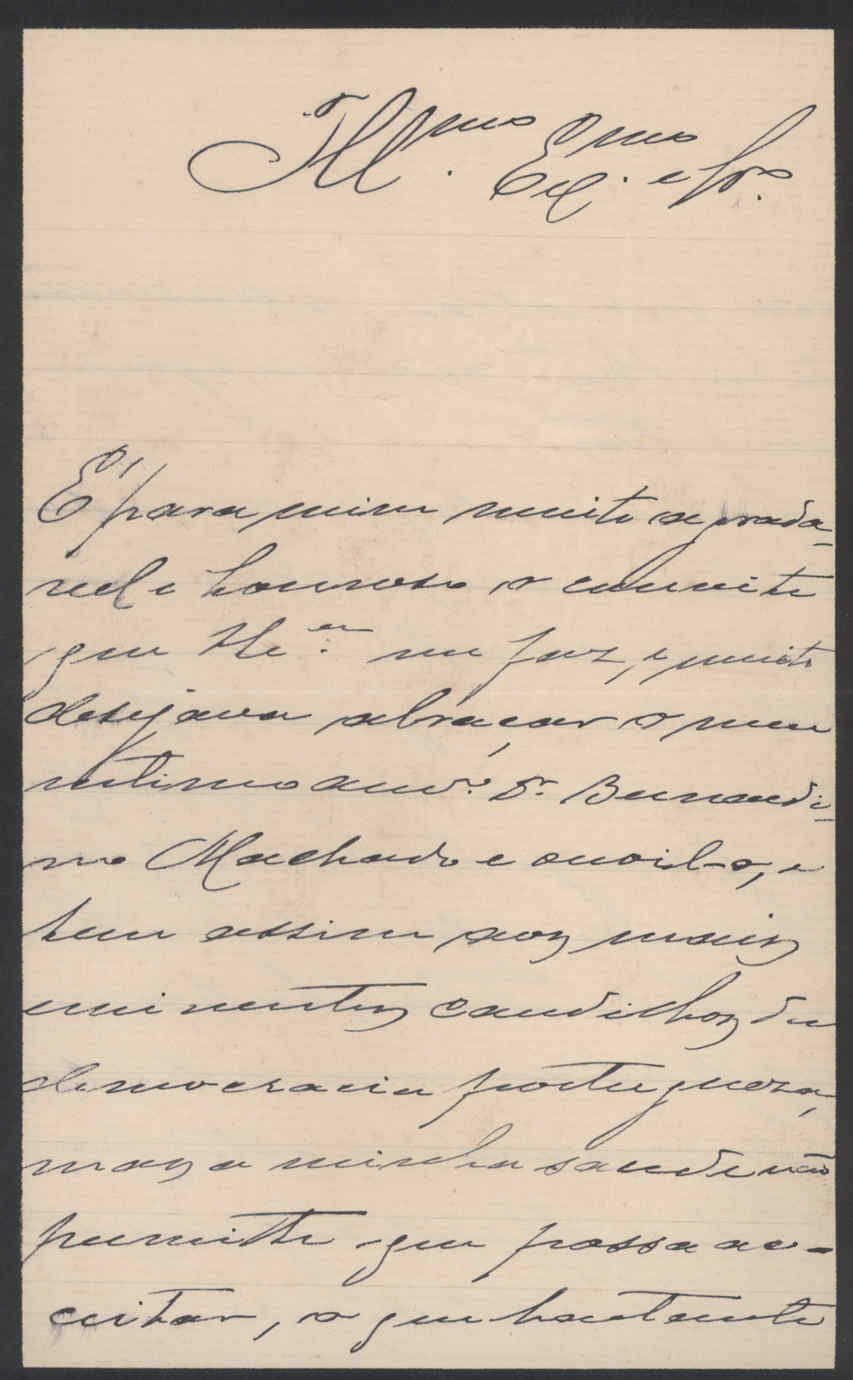 Ill.mo Ex.mo Sr.
É para mim muito agrada-
vel e honroso o convite
que V. Ex.cia me faz, e muito
desejava abraçar o meu
intimo am.o Dr. Bernardi-
no Machado e ouvil-o, e
bem assim aos mais
eminentes caudilhos da
democracia portugueza,
mas a minha saude não
permitte que possa ac-
ceitar, o que bastante